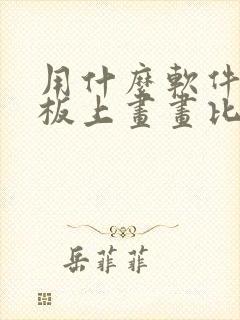 用什麼軟件
板上畫畫比
岳菲菲